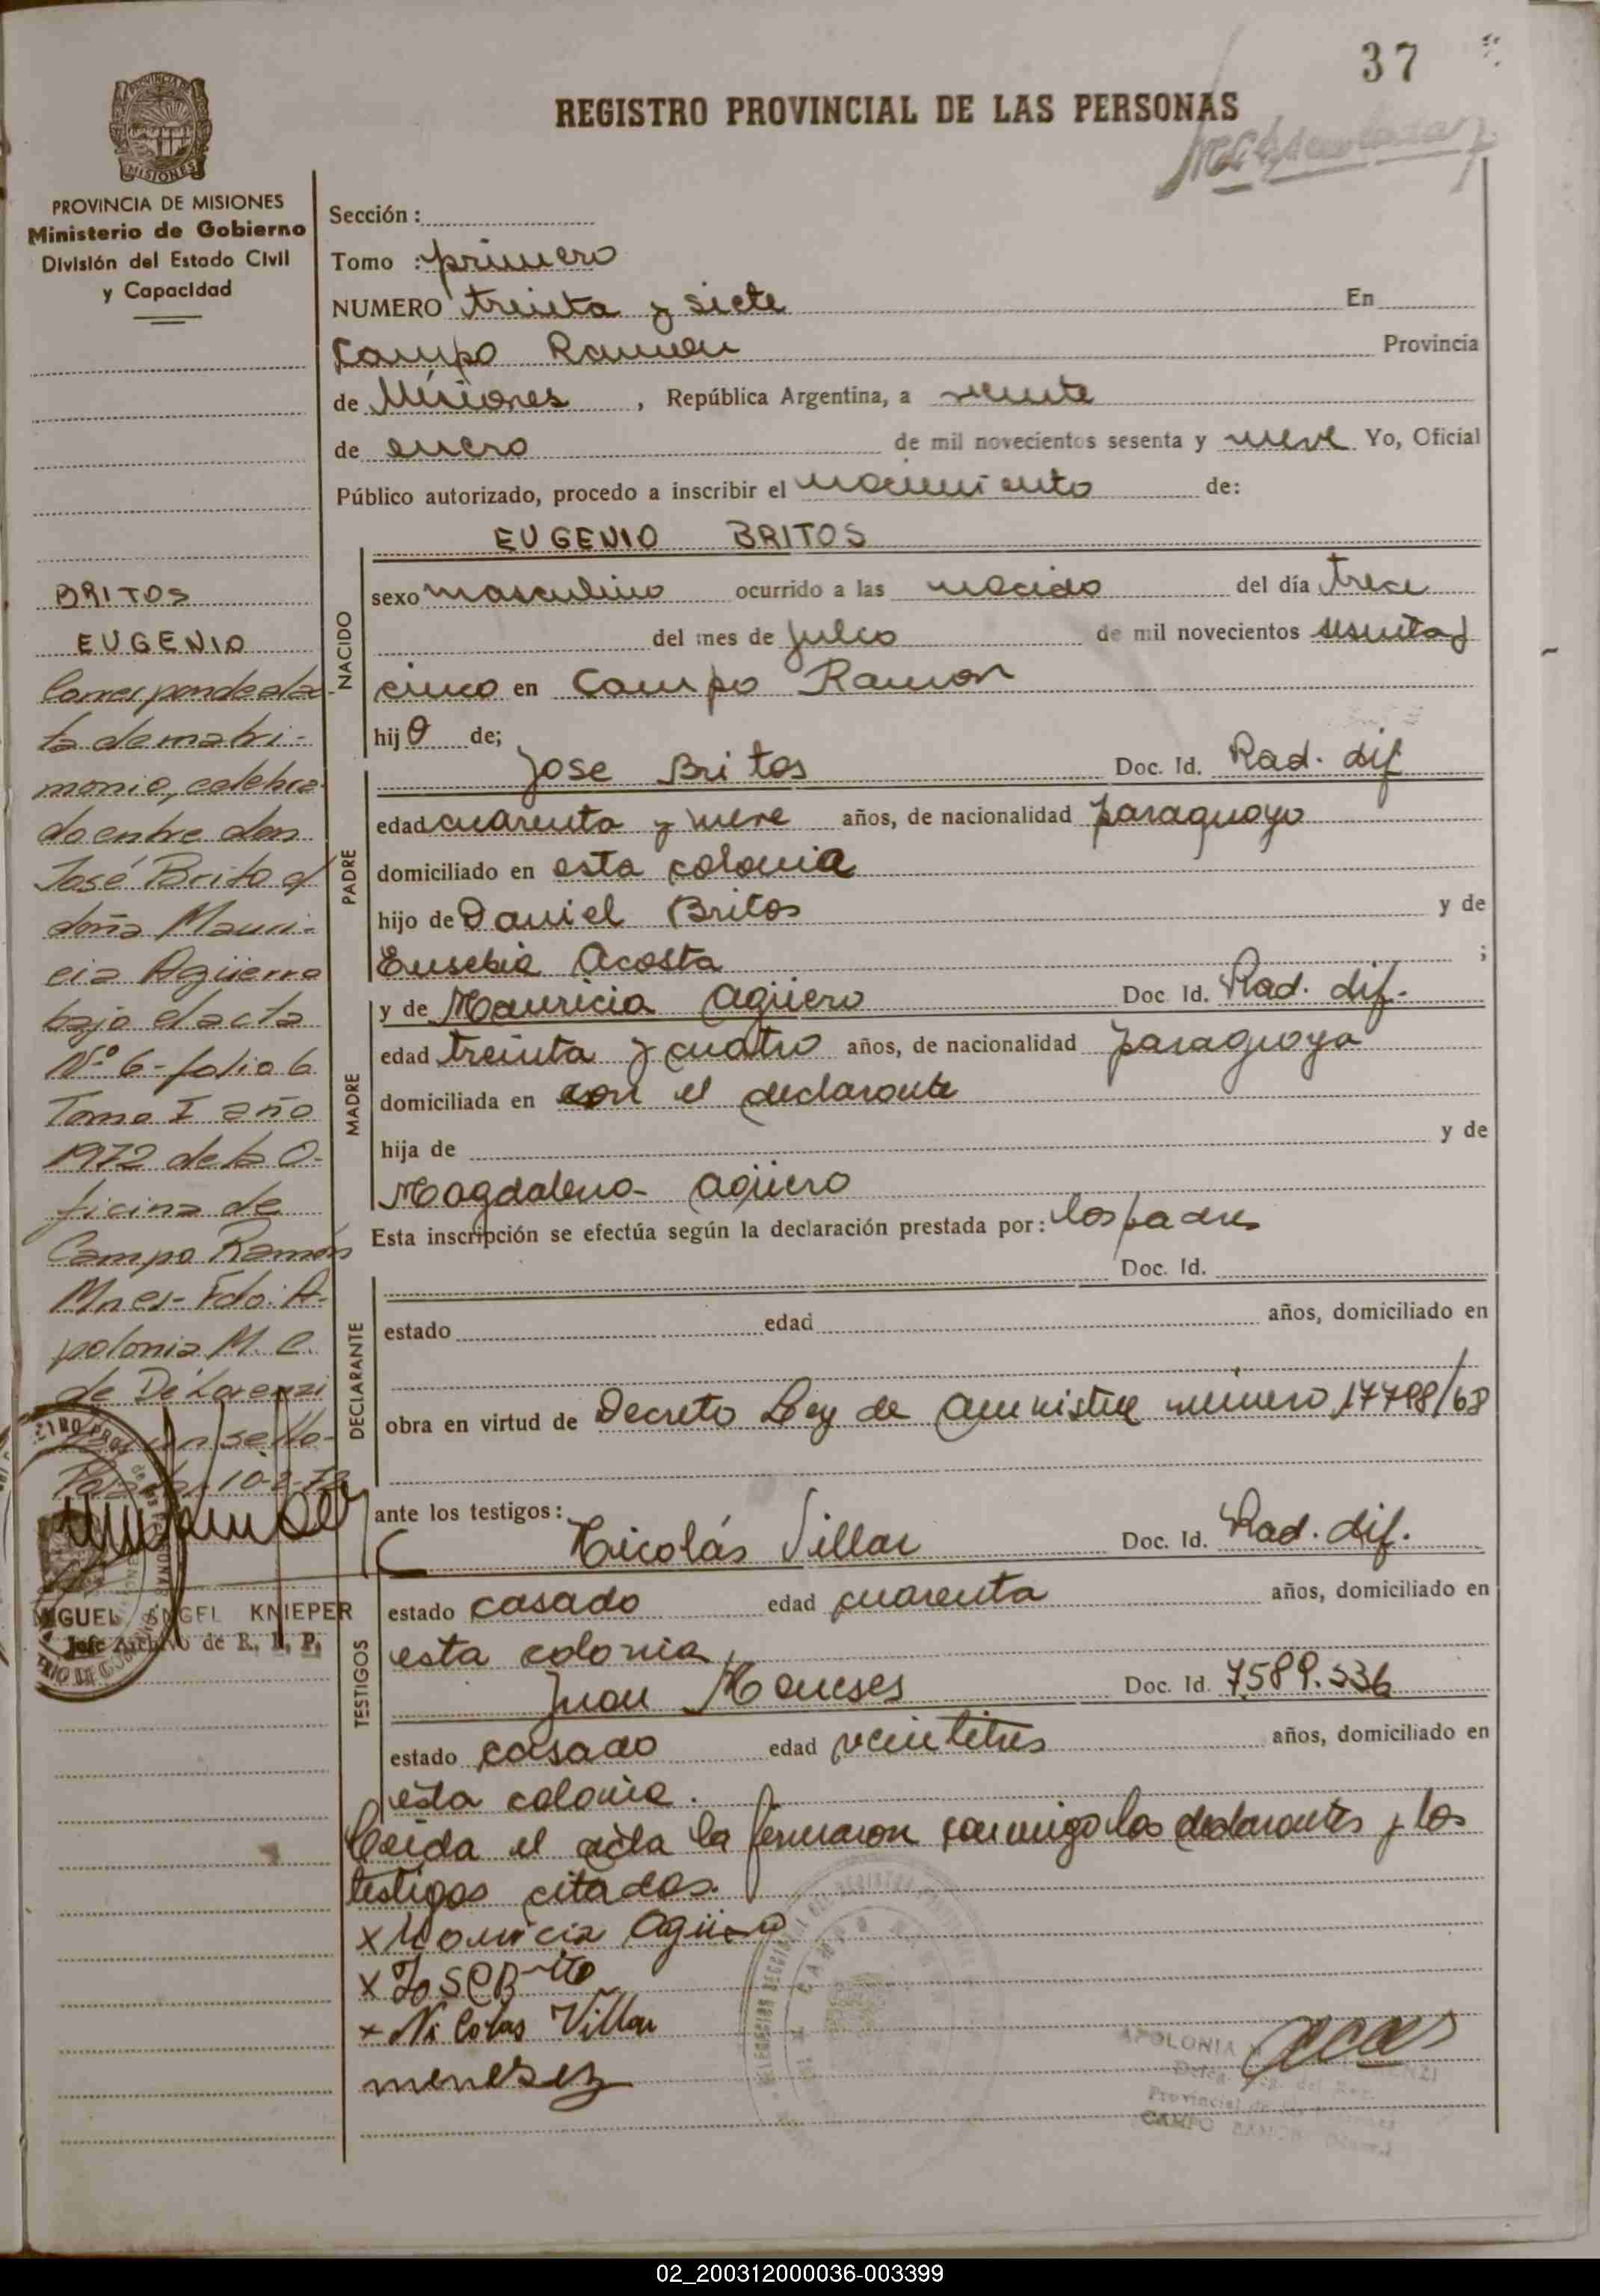 37
REGISTRO PROVINCIAL DE LAS PERSONAS
MISIONES
PROVINCIA DE MISIONES
Ministerio de Gobierno
División del Estado Civil
y Capacidad
BRITOS
EUGENIO
Corresponde ac
ta de matri-
monio, celebra
do entre don
José Brito y
doña Mauri-
cia Agüero
bajo el acta
Nº 6 - folio 6
Tomo I año
1972 de la O-
ficina de
Campo Ramón
Mnes - Fdo: A-
polonia M. C.
de De Lorenzi
MIGUEL ANGEL KNIEPER
Jefe Archivo de R. P. P.
Sección :
Tomo : primero
NUMERO treinta y siete En
Campo Ramon Provincia
de Misiones , República Argentina, a veinte
de enero de mil novecientos sesenta y nueve Yo, Oficial
Público autorizado, procedo a inscribir el nacimiento de:
EUGENIO BRITOS
NACIDO
sexo masculino ocurrido a las nacido del día trece
del mes de julio de mil novecientos sesenta y
cinco en Campo Ramon
hijo de;
PADRE
Jose Britos Doc. Id. Rad. dif
edad cuarenta y nueve años, de nacionalidad paraguayo
domiciliado en esta colonia
hijo de Daniel Britos y de
Eusebia Acosta ;
MADRE
y de Mauricia Agüero Doc Id. Rad. dif.
edad treinta y cuatro años, de nacionalidad paraguaya
domiciliada en con el declarante
hija de y de
Magdalena Agüero
Esta inscripción se efectúa según la declaración prestada por: los padres
Doc. Id.
DECLARANTE
estado edad años, domiciliado en
obra en virtud de Decreto Ley de Amnistia número 17798/68
ante los testigos:
TESTIGOS
Nicolás Villar Doc. Id. Rad. dif.
estado casado edad cuarenta años, domiciliado en
esta colonia
Juan Meneses Doc. Id. 7.589.536
estado casado edad veintitres años, domiciliado en
esta colonia.
Leida el acta la firmaron conmigo los declarantes y los
testigos citados.
x Mauricia Agüero
x Jose Brito
x Nicolas Villar
menesez
APOLONIA
CAMPO RAMON
02_200312000036-003399